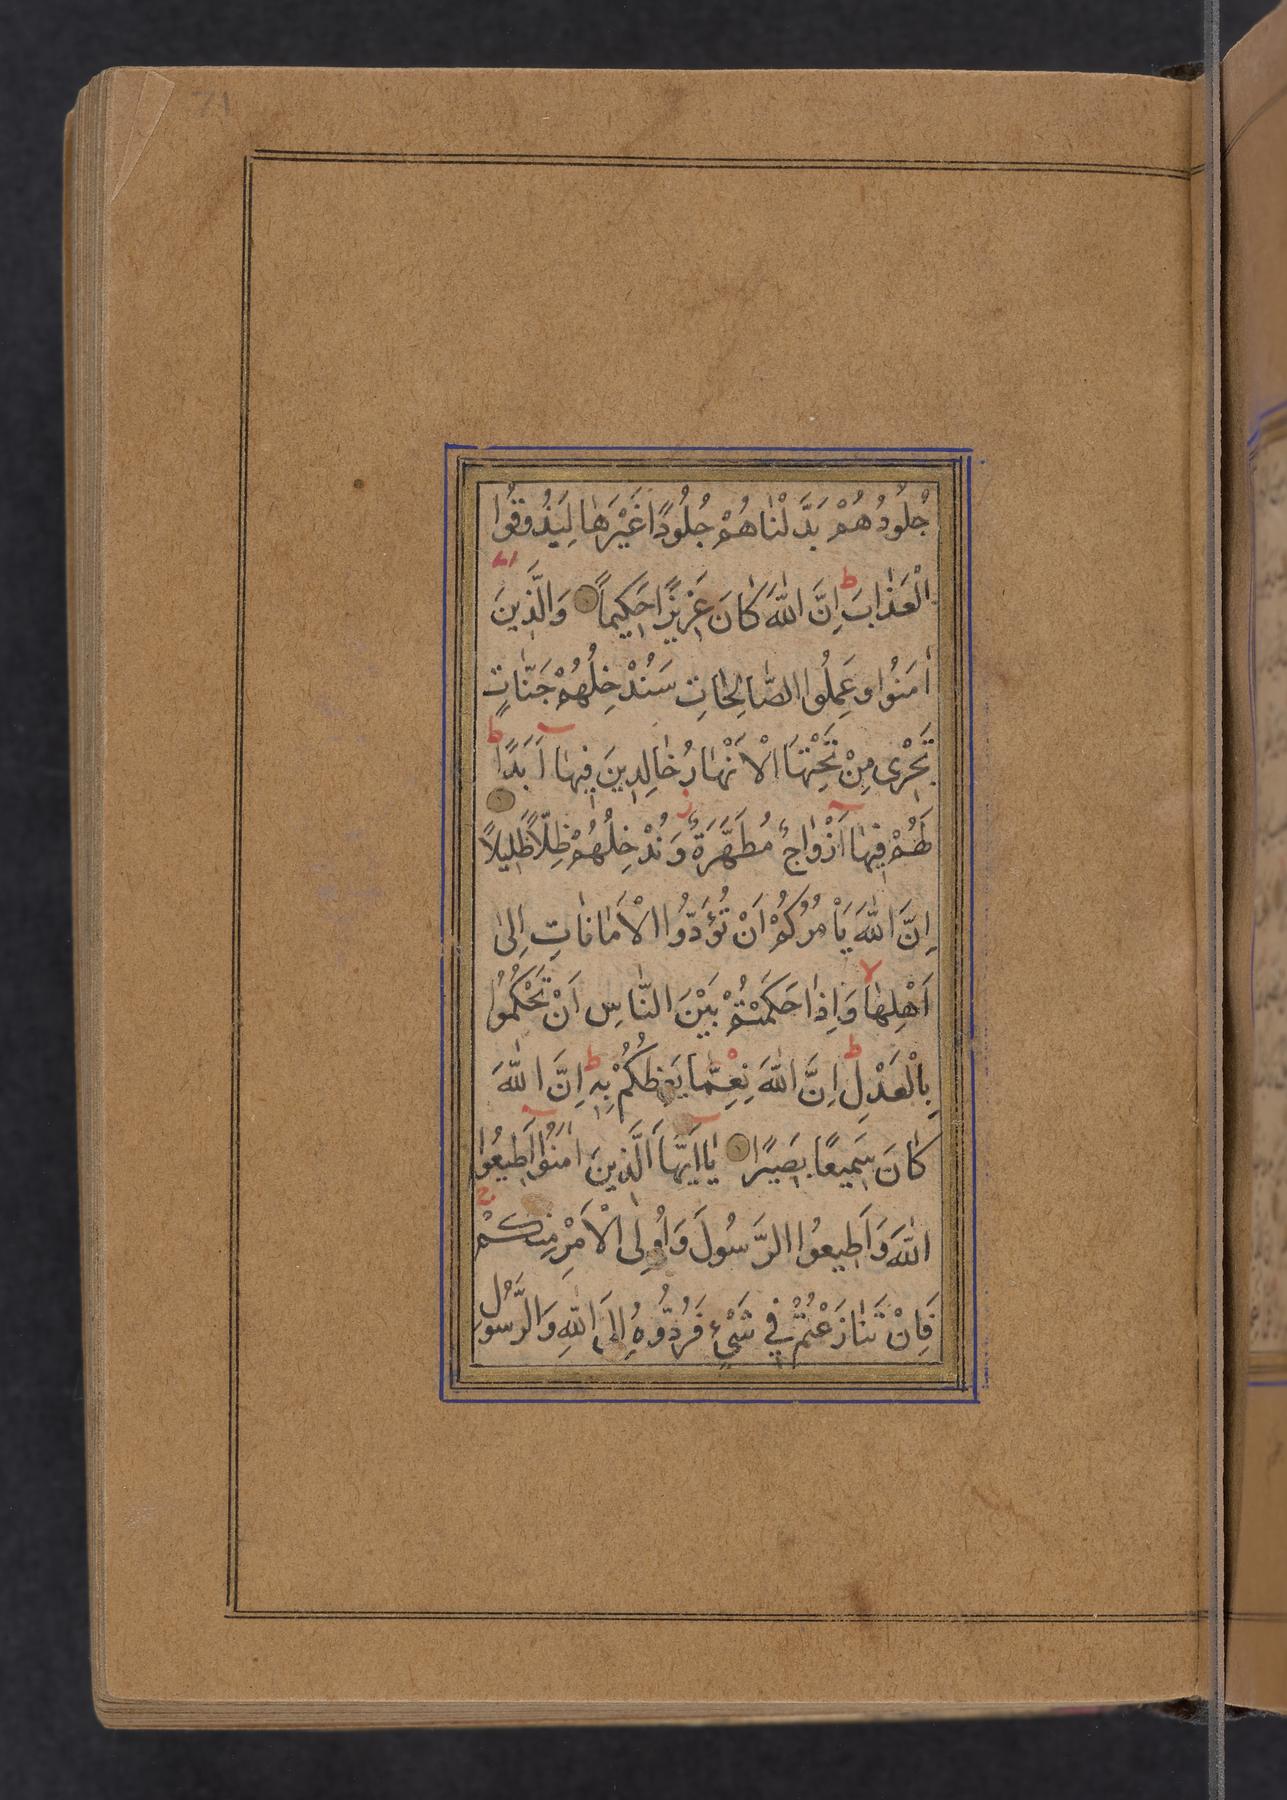 71
جُلُودُهُمْ بَدَّلْنَاهُمْ جُلُودًا غَيْرَهَا لِيَذُوقُوا
الْعَذَابَ ط اِنَّ اللّٰهَ كَانَ عَزِيزًا حَكِيمًا وَالَّذِينَ
اٰمَنُوا وَعَمِلُوا الصَّالِحَاتِ سَنُدْخِلُهُمْ جَنَّاتٍ
تَجْرٖى مِنْ تَحْتِهَا الْاَنْهَارُ خَالِدِينَ فِيهَآ اَبَدًا ط
لَهُمْ فِيهَآ اَزْوَاجٌ مُطَهَّرَةٌ ز وَنُدْخِلُهُمْ ظِلًّا ظَلِيلًا
اِنَّ اللّٰهَ يَاْمُرُكُمْ اَنْ تُؤَدُّوا الْاَمَانَاتِ اِلٰى
اَهْلِهَا لا وَاِذَا حَكَمْتُمْ بَيْنَ النَّاسِ اَنْ تَحْكُمُوا
بِالْعَدْلِ ط اِنَّ اللّٰهَ نِعِمَّا يَعِظُكُمْ بِهٖ ط اِنَّ اللّٰهَ
كَانَ سَمِيعًا بَصِيرًا يَآ اَيُّهَا الَّذِينَ اٰمَنُوٓا اَطِيعُوا
اللّٰهَ وَاَطِيعُوا الرَّسُولَ وَاُولِى الْاَمْرِ مِنْكُمْ
فَاِنْ تَنَازَعْتُمْ فِي شَيْءٍ فَرُدُّوهُ اِلَى اللّٰهِ وَالرَّسُولِ